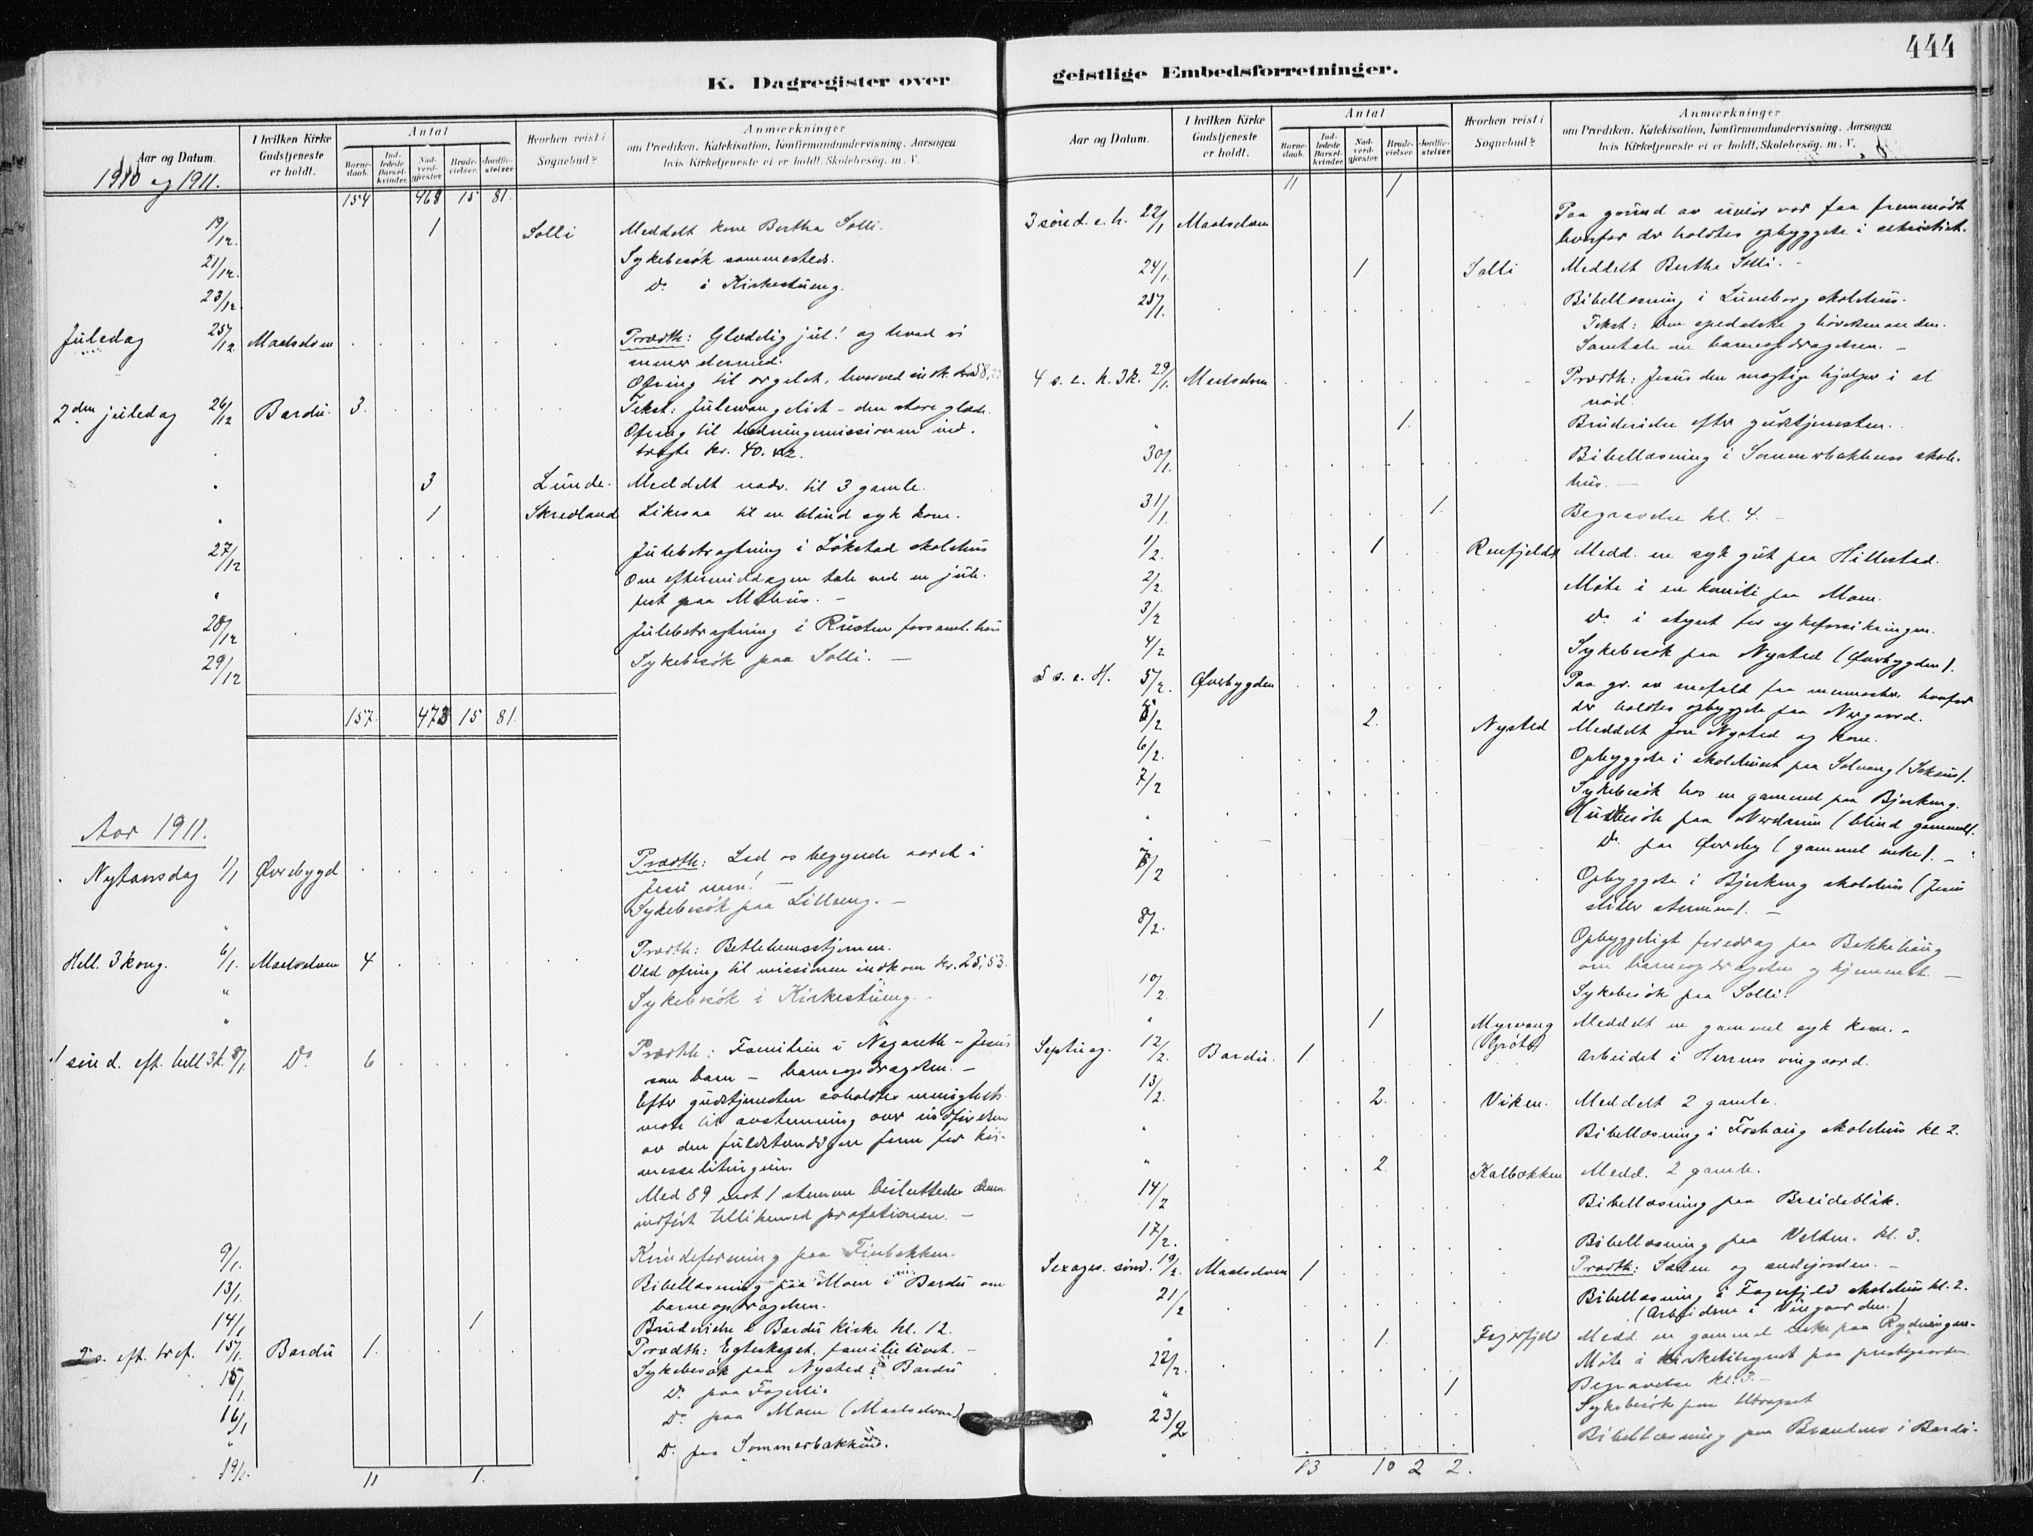 444
K. Dagregister over
geistlige Embedsforretninger.
Aar og Datum.
1910 og 1911.
I hvilken Kirke Gudstjeneste er holdt.
Antal
Barnedaab.
Indledede Barselkvinder.
Nadverdgjæster
Brudevielser.
Jordfæstelser
Hvorhen reist i Sognebud?
Anmærkninger
om Prædiken, Katekisation, Konfirmandundervisning, Aarsagen
hvis Kirketjeneste ei er holdt, Skolebesøg, m. V.
154 468 15 81.
19/12. 1 Solli Meddelt kone Bertha Solli.
21/12. Sykebesök sammesteds.
23/12 Do i Kirkestueng.
Juledag 25/12 Maalselven Prædth: Glædelig jul! og hvad vi
mener dermed.
Ofring til orgelet, hvorved indk.
2den juledag 26/12 Bardu. 3. Tekst: Juleevangeliet – den store glæde.
Ofring til hedningemissionen ind.
bragte kr. 40.
" 3 Lunde. Meddelt nadv. til 3 gamle.
" 1 Skredland Likesaa til en blind syk kone.
27/12 Julebetragtning i Løkstad skolehus
" Om eftermiddagen tale ved en jule-
fest paa Mohus. –
28/12 Julebetragtning i Rusten forsaml.hus
29/12 Sykebesök paa Solli. –
157. 473 15 81.
Aar 1911.
Nytaarsdag 1/1 Øverbygd Prædth: Lad os begynde aaret i
Jesu navn! –
" Sykebesök paa Lilleeng. –
Hell. 3 kong. 6/1. Maalselven 4 Prædth: Betlehemsstjernen.
Ved ofring til missionen indkom kr. 25,53.
" Sykebesök i Kirkestueng. –
1 sönd. eft. hell 3k. 8/1 Do 6 Prædth: Familien i Nazareth – Jesus
som barn – barneopdragelsen. –
Efter gudstjenesten avholdtes menighets-
møte til avstemning over indförelsen
av den fuldstændigere form for höi-
messeliturgien.
Med 89 mot 1 stemme besluttedes denne
indfört tillikemed –
9/1. Kvindeforening paa Finbakken.
13/1. Bibellæsning paa Moen i Bardu om
barneopdragelsen.
14/1 1 Brudevielse i Bardu kirke kl. 12.
2 s. eft. tref. 15/1. Bardu 1. Prædth: Egteskapet, familielivet. –
Sykebesök paa Nysted i Bardu
15/1 Do paa Fagerli.
16/1 Do paa Moen (Maalselven)
" Do paa Sommerbakken.
19/1.
11 1.
Aar og Datum.
I hvilken Kirke Gudstjeneste er holdt.
Antal
Barnedaab.
Indledede Barselkvinder
Nadverdgjæster
Brudevielser.
Jordfæstelser
Hvorhen reist i Sognebud?
Anmærkninger
om Prædiken, Katekisation, Konfirmandundervisning, Aarsagen
hvis Kirketjeneste ei er holdt, Skolebesøg, m. V.
11 1
3 sönd. e. h. 22/1 Maalselven Paa grund av uveir var faa fremmødt
hvorfor der holdtes opbyggelse i sakristiet.
24/1 1 Solli Meddelt Berthe Solli. –
25/1. Bibellæsning i Luneborg skolehus.
Tekst: Den spedalske og höveksmanden.
Samtale om barneopdragelsen. –
4 s. e. h. 3k. 29/1. Maalselven Prædth: Jesus den mægtige hjelper i al
nød.
" 1. Brudevielse efter gudstjenesten.
30/1. Bibellæsning i Sommerbakkens skole-
hus. –
31/1. 1. Begravelse kl. 4. –
1/2. 1 Renfjeldet Medd. en syk gut paa Hillestad.
2/2. Møte i en komité paa Moen.
3/2 Do i styret for sykeforsikringen.
4/2 Sykebesök paa Nysted (Øverbygden).
5 s. e. H. 5/2. Øverbygden Paa gr. av snefald faa mennesker, hvorfor
der holdtes opbyggelse paa Nergaard.
5/2 2. Nysted Meddelt fore Nysted og kone.
6/2. Opbyggelse i skolehuset paa Solvang
7/2 Sykebesök hos en gammel paa Bjerkeng.
" Husbesök paa Nordmo (blind gammel).
" Do paa Øverby (gammel enke). –
7/2 Opbyggelse i Bjerkeng skolehus (Jesus
stiller stormen). –
8/2. Opbyggeligt foredrag paa Bakkehaug
om barneopdragelsen og hjemmet. –
10/2 Sykebesök paa Solli.
" 1 Myrvang (Grøtö) Meddelt en gammel syk kone. –
Septuag. 12/2. Bardu. 1 Arbeidet i Herrens vingaard.
13/2. 2. Viken. Meddelt 2 gamle.
" Bibellæsning i Foshaug skolehus kl. 2.
" 2. Kalbækken Medd. 2 gamle.
14/2 Bibellæsning paa Breidablik.
17/2. Bibellæsning paa Velten. kl. 3.
Sexages. sönd. 19/2. Maalselven 1 Prædth: Sæden og sædejorden. –
21/2 Bibellæsning i Fagerfjeld skolehus kl. 2.
(Arbeiderne i Vingaarden.)
" 1. Fagerfjeld Medd. en gammel enke paa Rydningen.
22/2. Møte i kirketilsynet paa prestegaarden.
" 1 Begravelse kl. 3. –
Sykebesök paa
23/2 Bibellæsning paa i Bardu.
13 10 2 2.